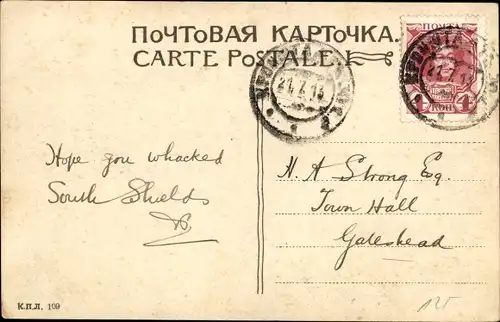 ПОЧТОВАЯ КАРТОЧКА.
CARTE POSTALE.
ПОЧТА
21.7.13
21.7.13
4 КОП 4
Hope you whacked
South Shields
H. A Strong Esq.
Town Hall
Gateshead
К.П.Л. 109